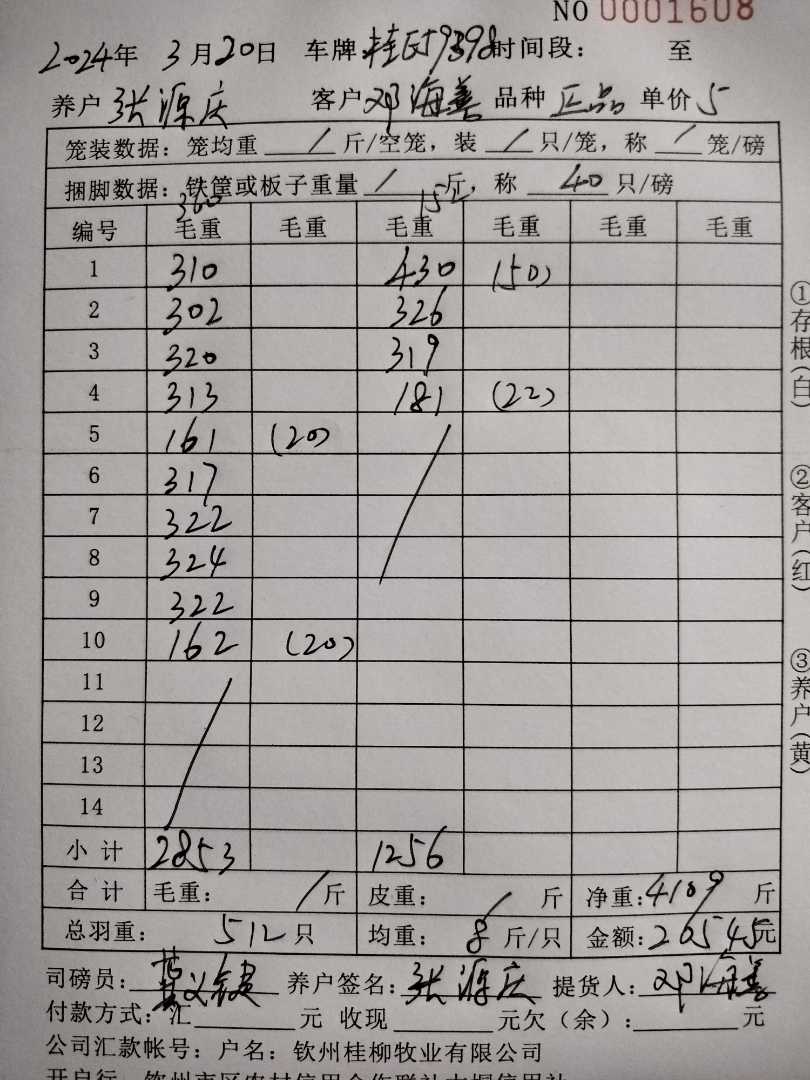 NO 0001608
2024年 3月20日 车牌:桂 59398 时间段: 至
养户 张源庆 客户 邓海善 品种 正品 单价 5
笼装数据: 笼均重 / 斤/空笼, 装 / 只/笼, 称 / 笼/磅
捆脚数据: 铁筐或板子重量 / 斤, 称 40 只/磅
360 152
编号 毛重 毛重 毛重 毛重 毛重 毛重
1 310 430 (50)
2 302 326
3 320 319
4 313 181 (22)
5 161 (20)
6 317
7 322
8 324
9 322
10 162 (20)
11
12
13
14
小计 2853 1256
合计 毛重: / 斤 皮重: / 斤 净重: 4109 斤
总羽重: 512 只 均重: 8 斤/只 金额: 20545元
司磅员: 养户签名: 张源庆 提货人: 邓海善
付款方式: 汇 元 收现 元欠(余): 元
公司汇款帐号: 户名: 钦州桂柳牧业有限公司
开户行 钦州市区农村信用合作联社大垌信用社
①存根(白) ②客户(红) ③养户(黄)